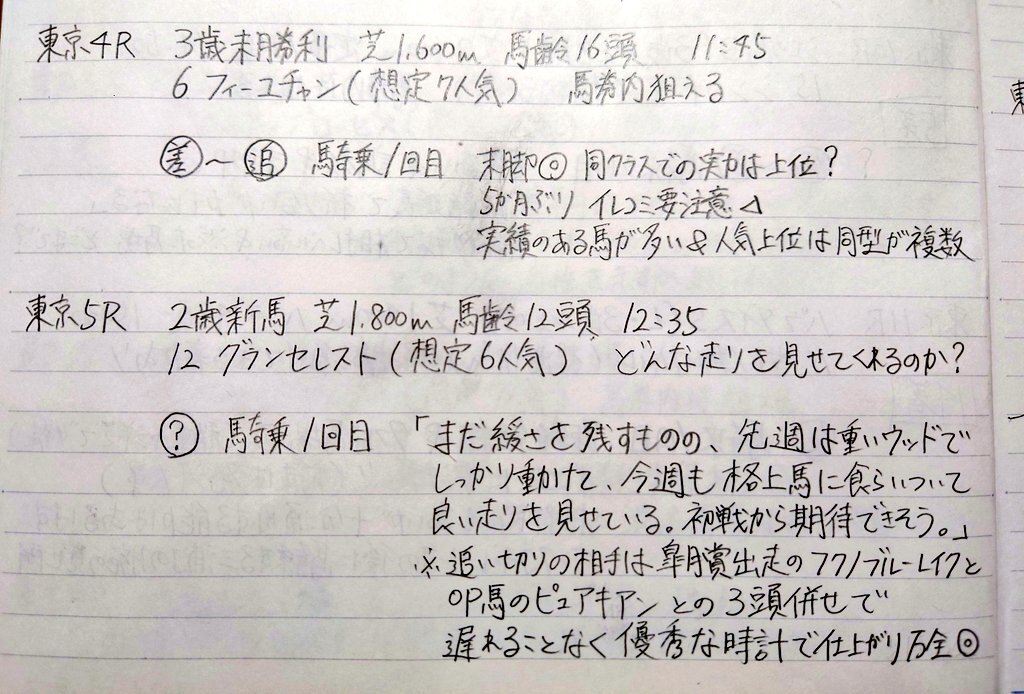 東京4R 3歳未勝利 芝1,600m 馬齢16頭 11:45
6 フィーユチャン(想定7人気) 馬券内狙える
差~追 騎乗1回目 末脚◎ 同クラスでの実力は上位?
5か月ぶり イレコミ要注意⊿
実績のある馬が多い&人気上位は同型が複数
東京5R 2歳新馬 芝1,800m 馬齢12頭 12:35
12 グランセレスト(想定6人気) どんな走りを見せてくれるのか?
? 騎乗1回目 「まだ緩さを残すものの、先週は重いウッドで
しっかり動けて、今週も格上馬に食らいついて
良い走りを見せている。初戦から期待できそう。」
※追い切りの相手は皐月賞出走のフクノブルーレイクと
OP馬のピュアキアンとの3頭併せで
遅れることなく優秀な時計で仕上がり万全◎